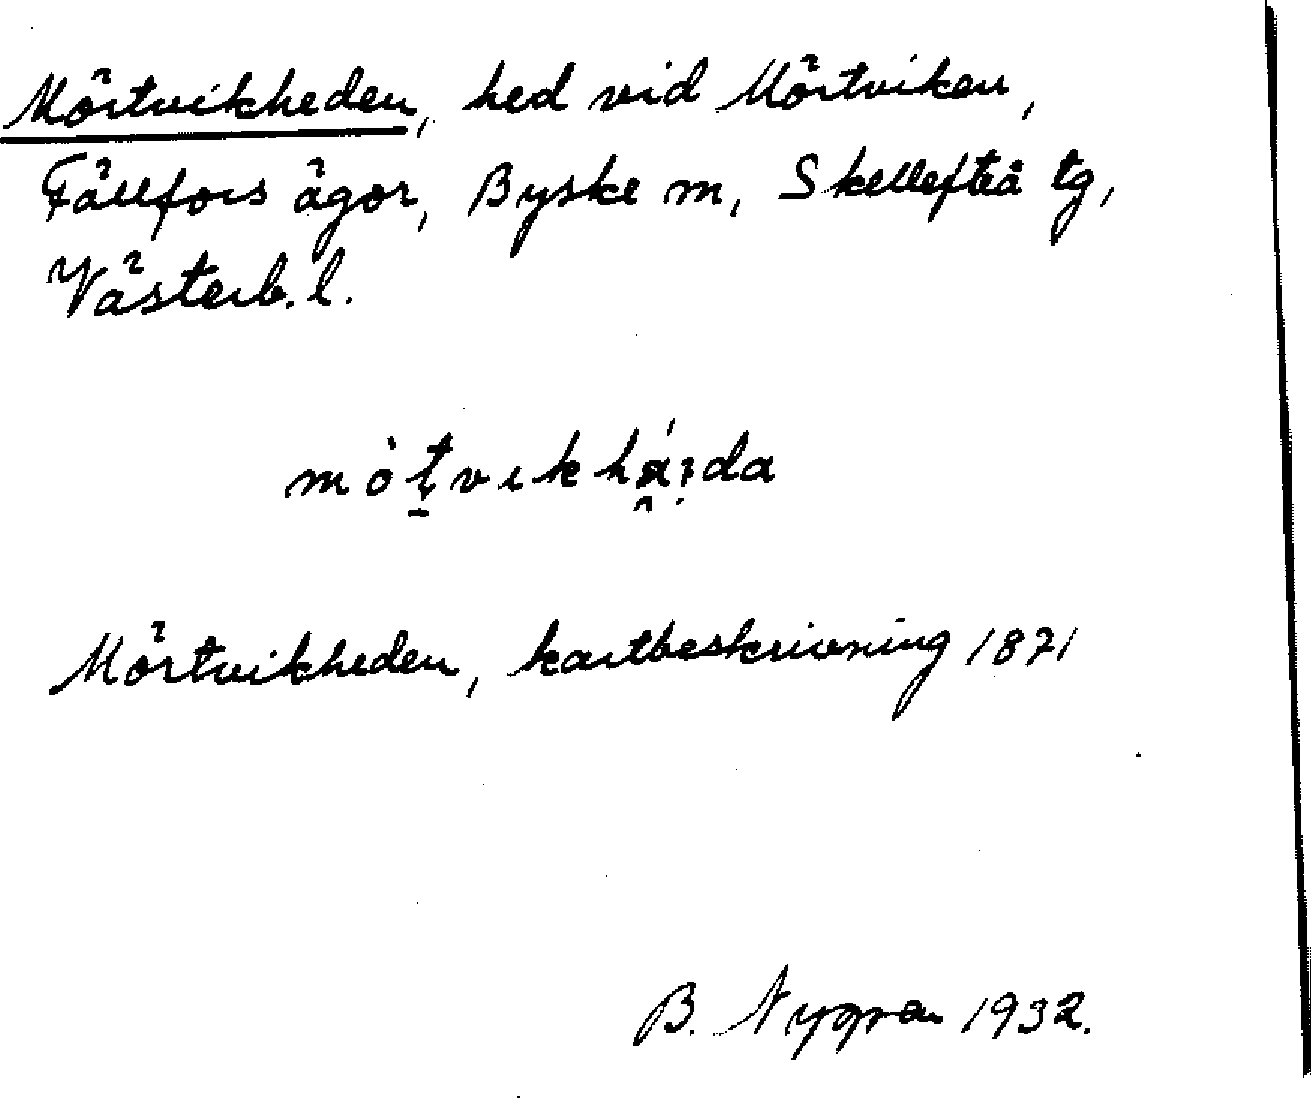 Mörtvikheden, hed vid Mörtviken,
Fällfors ägor, Byske m, Skellefteå tg,
Västerb. l.
Mörtvikheden, kartbeskrivning 1871
B. Nygren 1932.